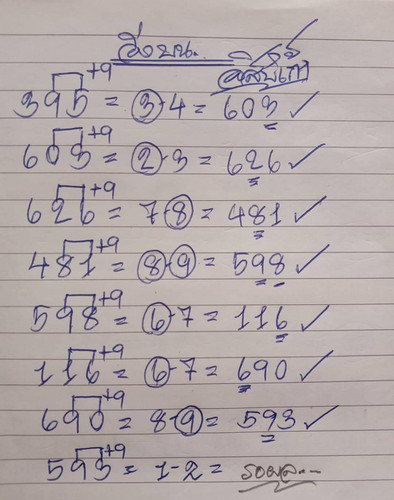 วิ่งบน..
395 +9 = 3-4 = 603 ✓
603 +9 = 2-3 = 626 ✓
626 +9 = 7-8 = 481 ✓
481 +9 = 8-9 = 598 ✓
598 +9 = 6-7 = 116 ✓
116 +9 = 6-7 = 690 ✓
690 +9 = 8-9 = 593 ✓
593 +9 = 1-2 = รอผล...